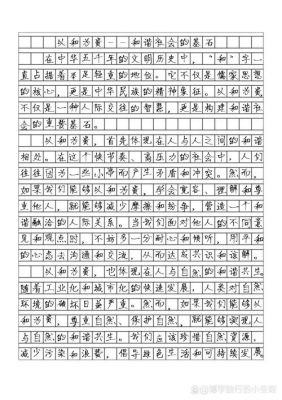 以和为贵--和谐社会的基石
在中华五千年的文明历史中，“和”字一
直占据着举足轻重的地位。它不仅是儒家思想
的核心，更是中华民族的精神象征。以和为贵
不仅是一种人际交往的智慧，更是构建和谐社
会的重要基石。
以和为贵，首先体现在人与人之间的和谐
相处。在这个快节奏、高压力的社会中，人们
往往因为一些小事而产生矛盾和冲突。然而，
如果我们能够以和为贵，学会宽容、理解和尊
重他人，就能够减少摩擦和纷争，营造一个和
谐融洽的人际关系。当我们面对他人的不同意
见和观点时，不妨多一分耐心和倾听，用平和
的心态去沟通和交流，从而达成共识和谅解。
以和为贵，也体现在人与自然的和谐共生
随着工业化和城市化的快速发展，人类对自然
环境的破坏日益严重。然而，如果我们能够以
和为贵，尊重自然、保护自然，就能够实现人
与自然的和谐共生。我们应该珍惜自然资源，
减少污染和浪费，倡导绿色生活和可持续发展